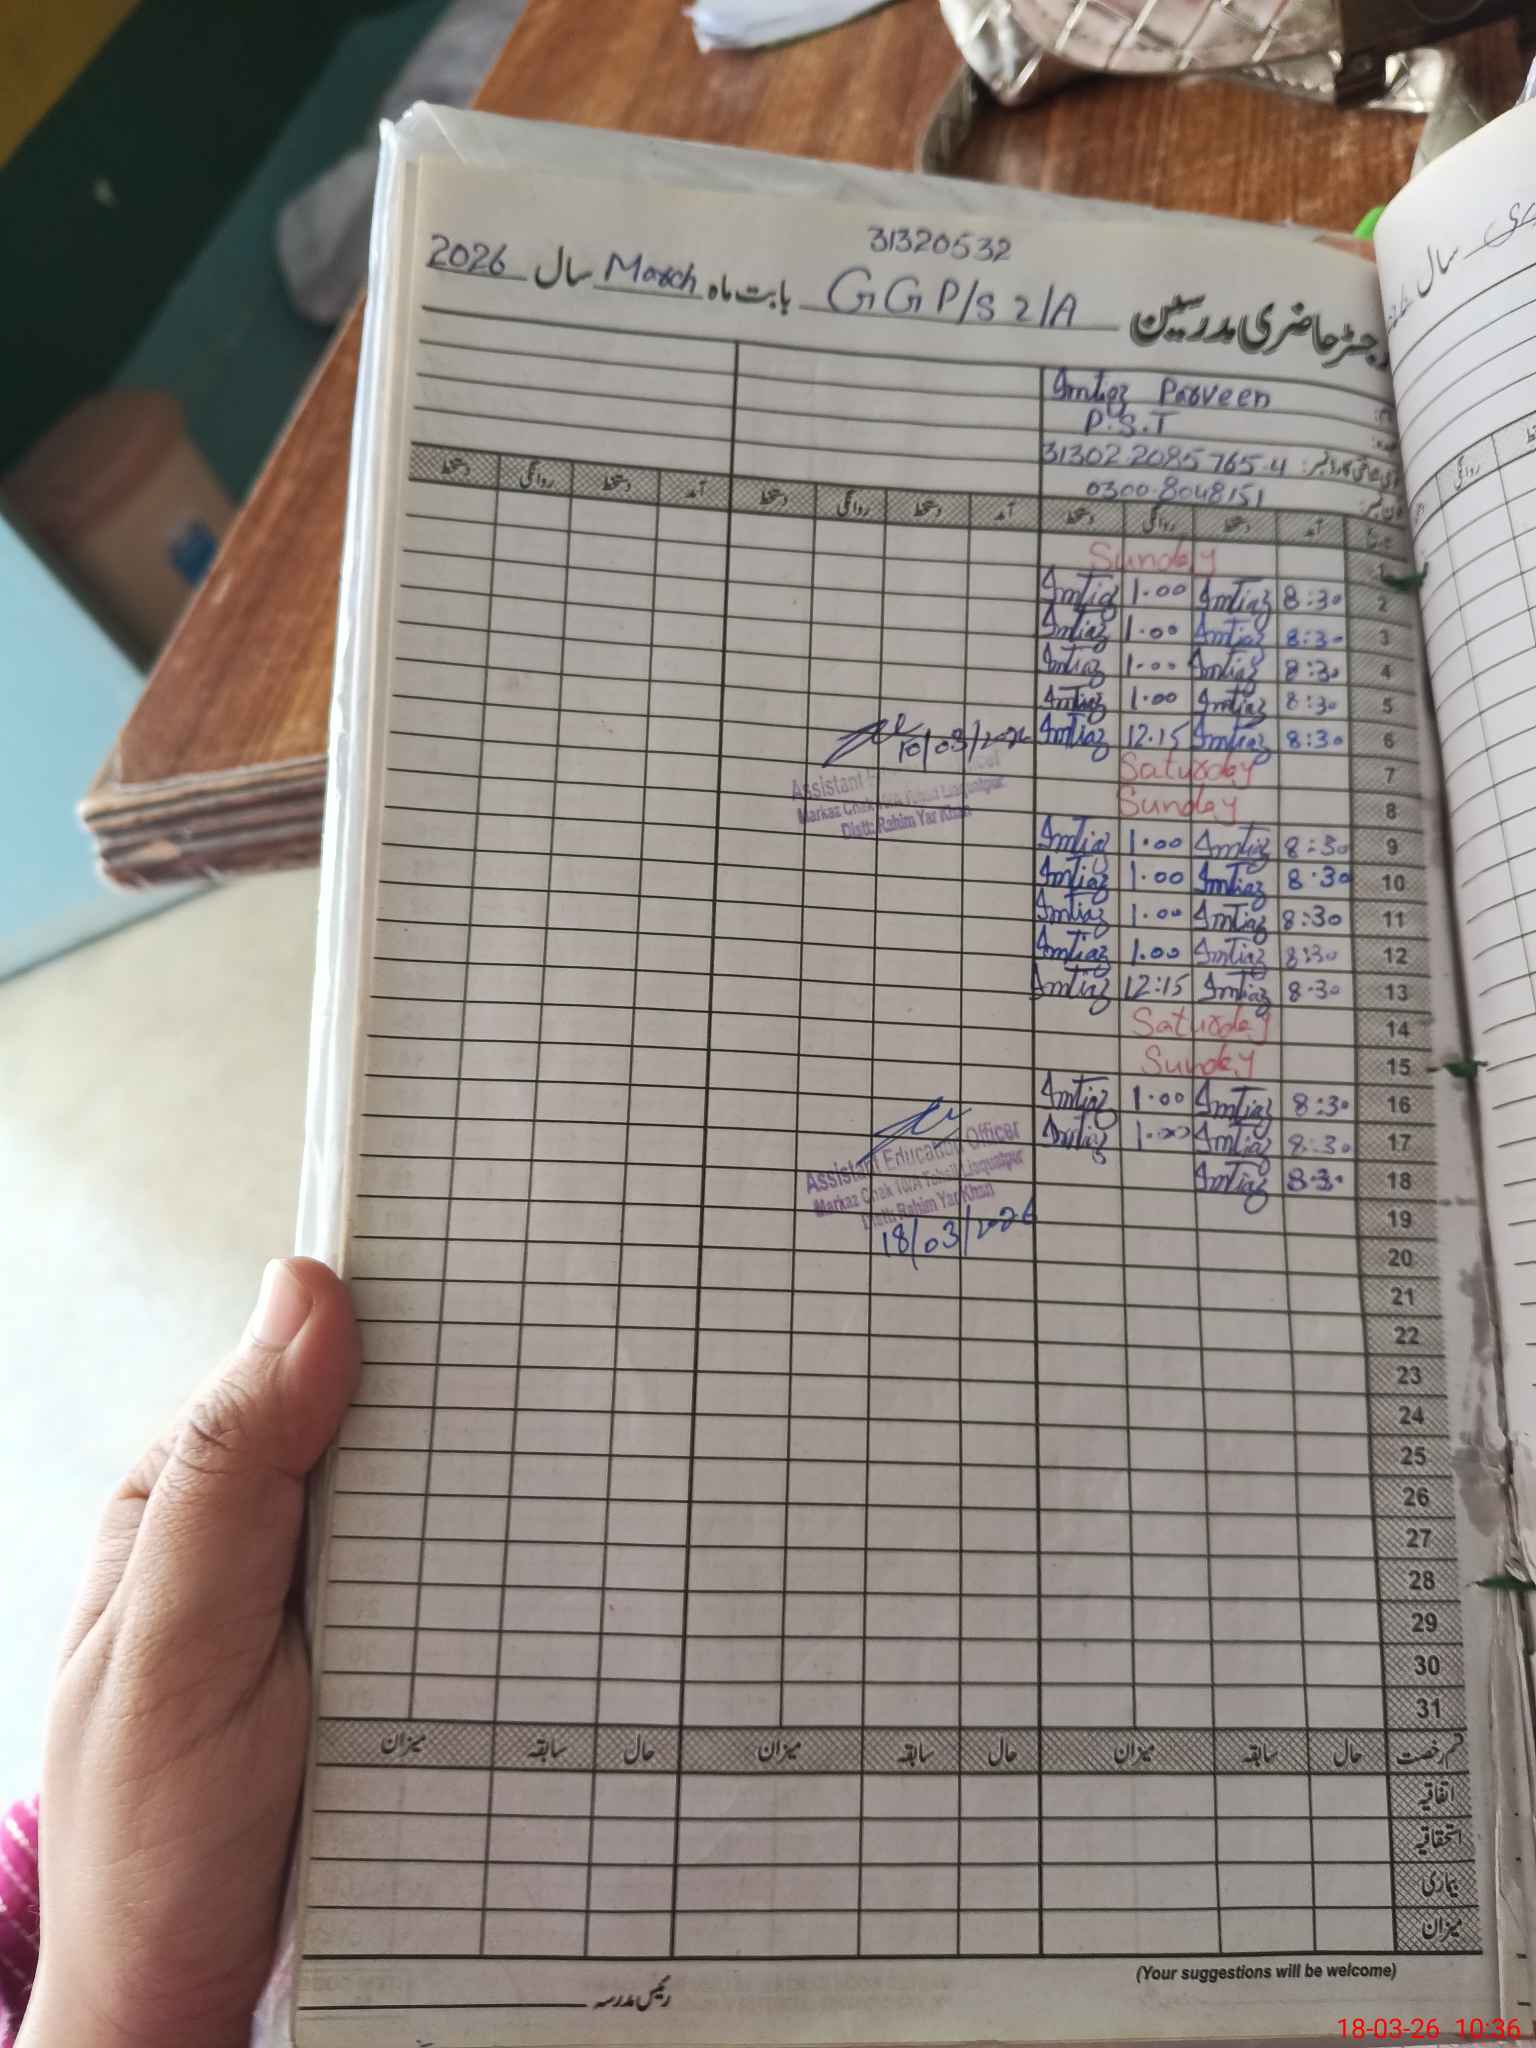 31320532
رجسٹر حاضری مدرسین G G P/S 2/A بابت ماہ March سال 2026
Imtiaz Parveen
P.S.T
31302 2085765-4
0300-8048151
آمد دستخط روانگی دستخط آمد دستخط روانگی دستخط آمد دستخط روانگی دستخط
1 Sunday
2 8:30 Imtiaz 1.00 Imtiaz
3 8:30 Imtiaz 1.00 Imtiaz
4 8:30 Imtiaz 1.00 Imtiaz
5 8:30 Imtiaz 1.00 Imtiaz
6 8:30 Imtiaz 12.15 Imtiaz 10/03/2026
7 Saturday
8 Sunday
Assistant Education Officer
Markaz Chak 10/A Tehsil Liaquatpur
Distt: Rahim Yar Khan
9 8:30 Imtiaz 1.00 Imtiaz
10 8:30 Imtiaz 1.00 Imtiaz
11 8:30 Imtiaz 1.00 Imtiaz
12 8:30 Imtiaz 1.00 Imtiaz
13 8.30 Imtiaz 12:15 Imtiaz
14 Saturday
15 Sunday
16 8:30 Imtiaz 1.00 Imtiaz
17 8:30 Imtiaz 1.00 Imtiaz
18 8.30 Imtiaz
Assistant Education Officer
Markaz Chak 10/A Tehsil Liaquatpur
Distt: Rahim Yar Khan
18/03/2026
19
20
21
22
23
24
25
26
27
28
29
30
31
قسم رخصت حال سابقہ میزان حال سابقہ میزان حال سابقہ میزان
اتفاقیہ
استحقاقیہ
بیماری
میزان
(Your suggestions will be welcome)
رئیس مدرسہ
18-03-26 10:36